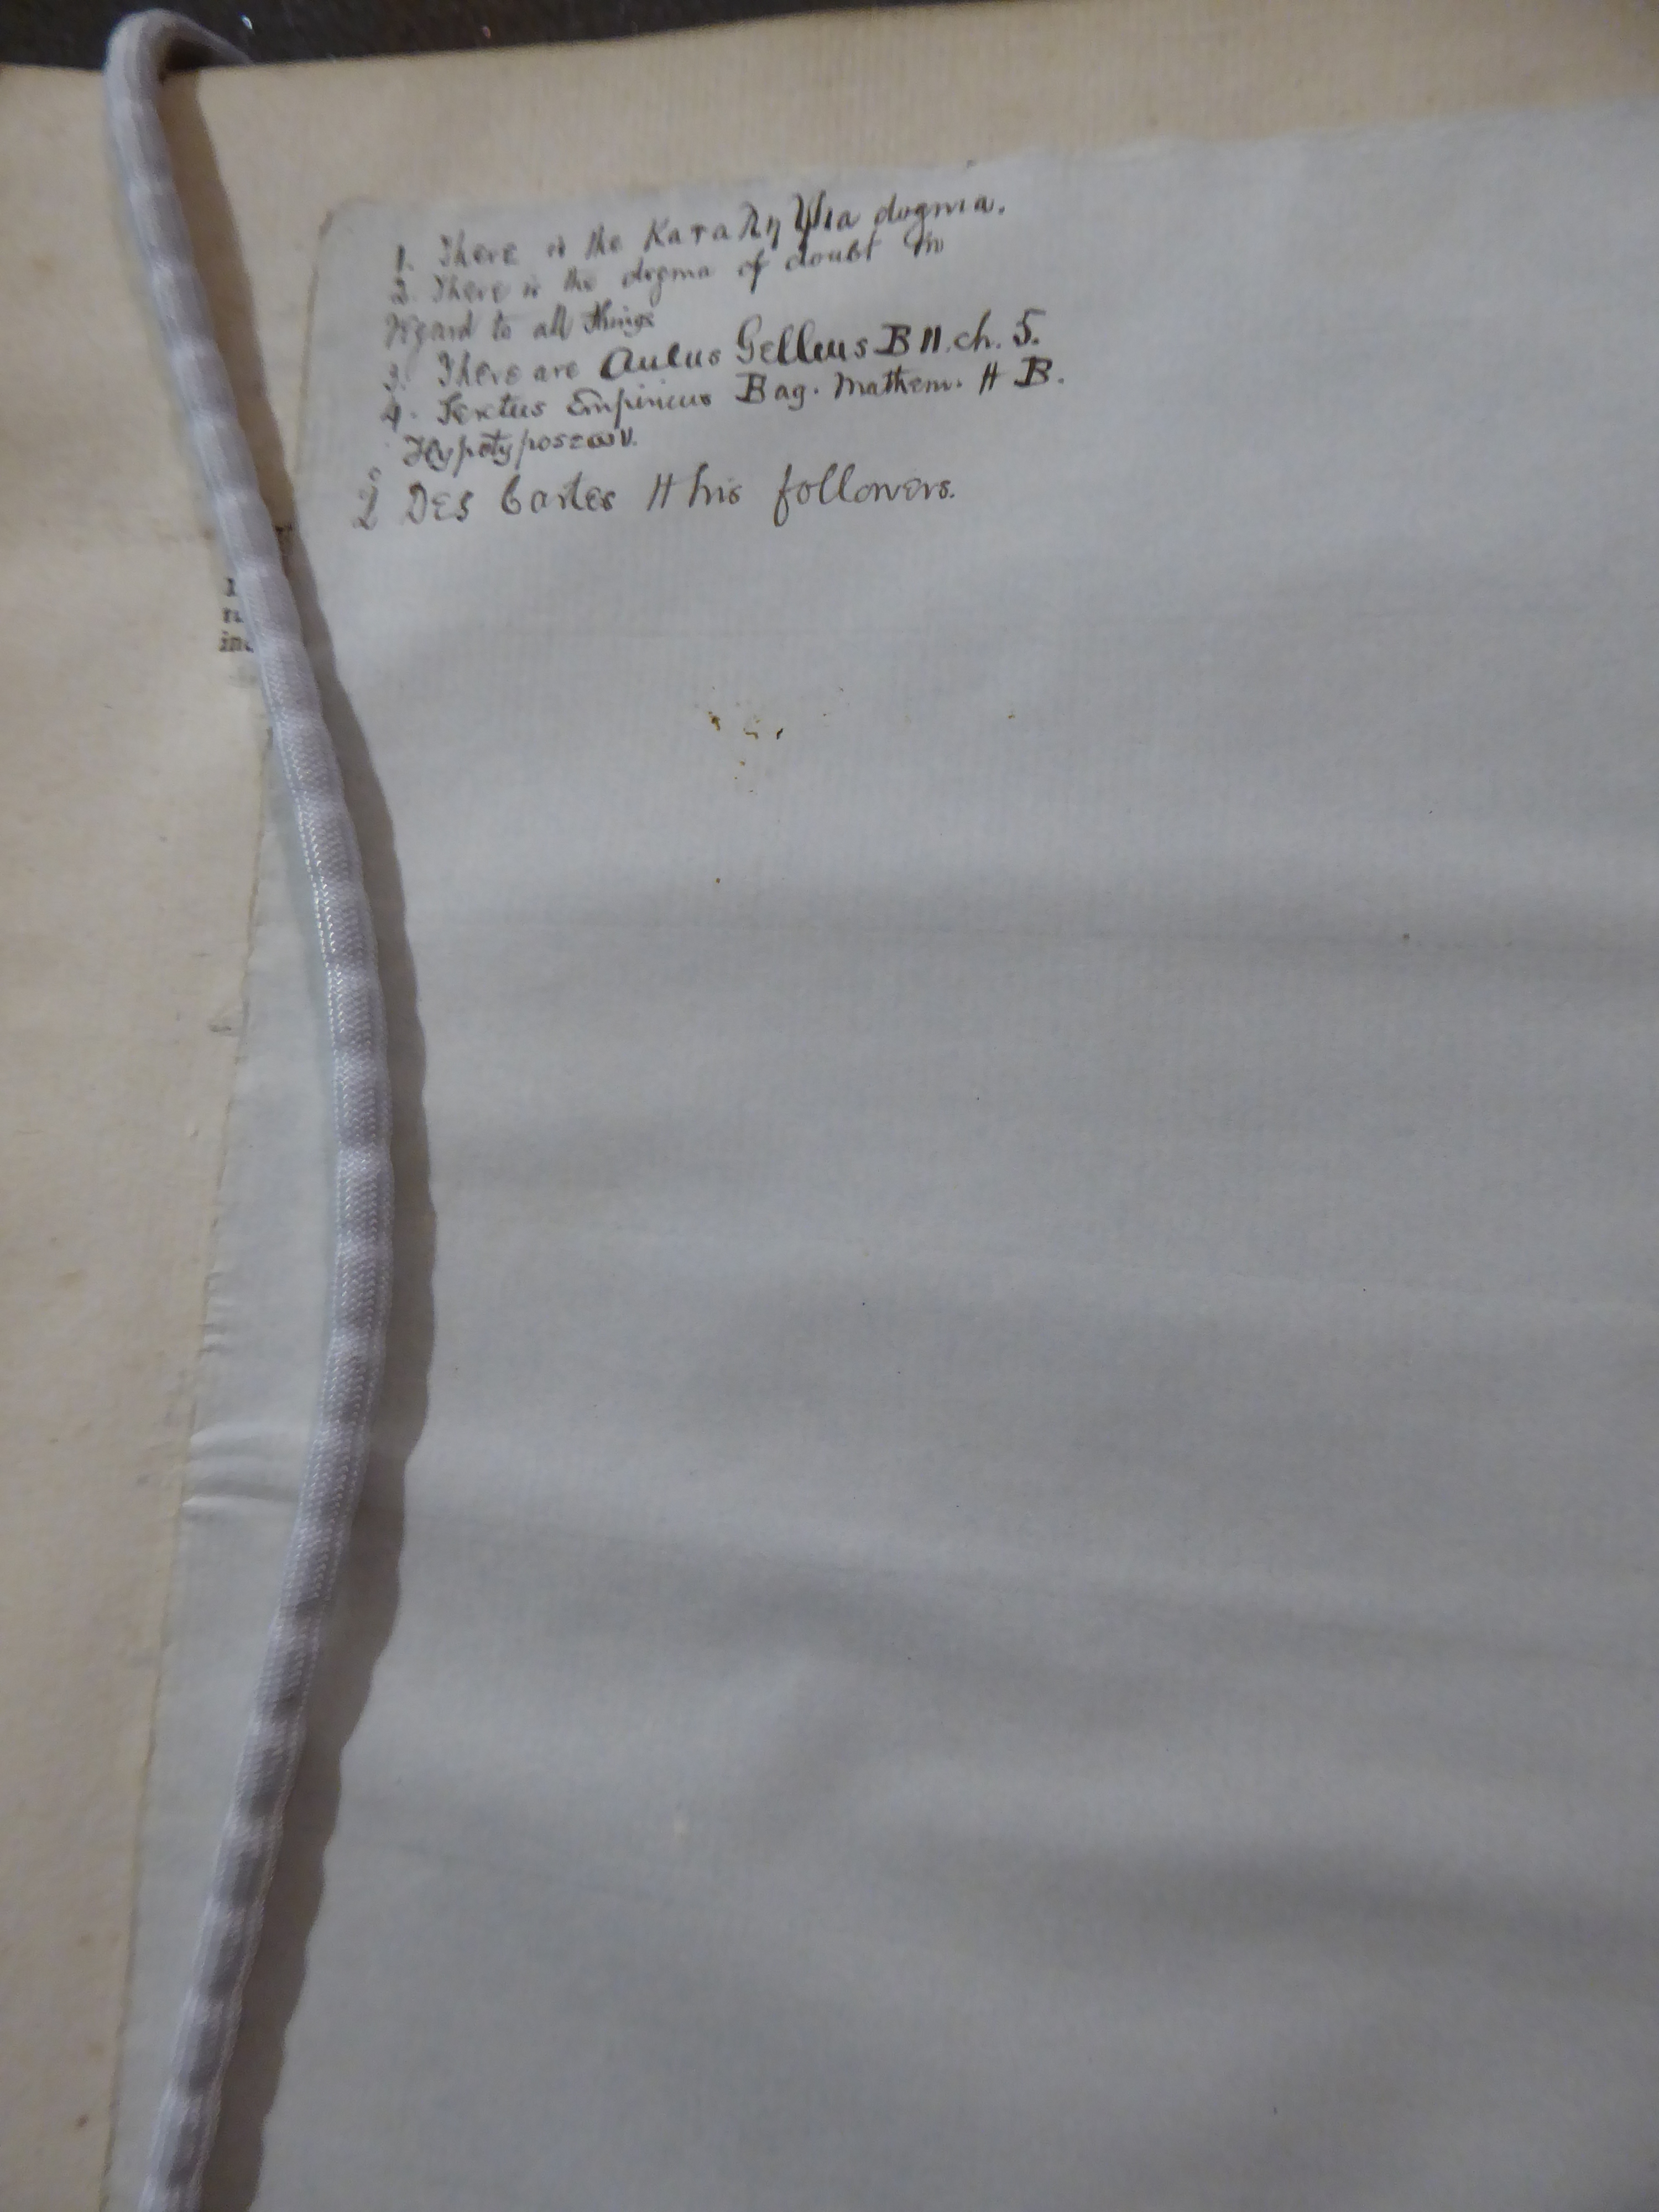 1. There is the Καταληψια dogma.
2. There is the dogma of doubt in
regard to all things
3. There are Aulus Gellius B 11. ch. 5.
4. Sextus Empiricus Bag. Mathem. H B.
Hypotyposεων.
2 Des Cartes H his followers.